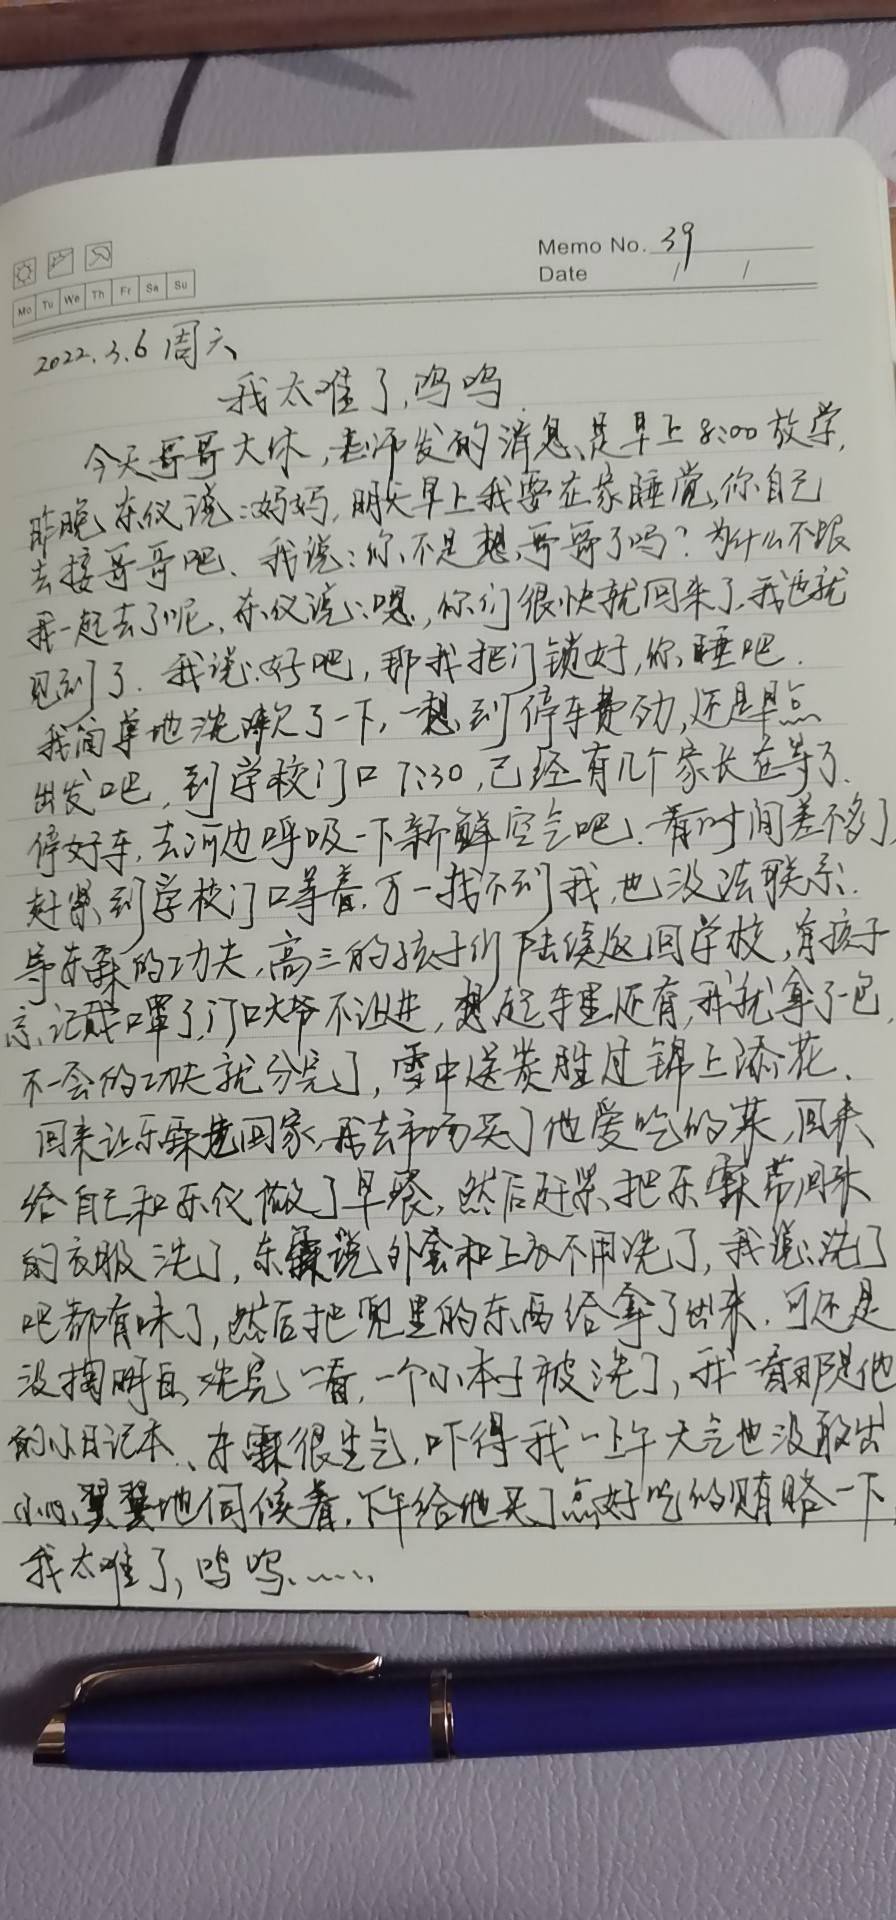 Memo No. 39
Date / /
Mo Tu We Th Fr Sa Su
2022.3.6 周六
我太难了,呜呜
今天哥哥大休,老师发的消息、是早上8:00放学,
昨晚东仪说:妈妈,明天早上我要在家睡觉,你自己
去接哥哥吧、我说:你不是想哥哥了吗?为什么不跟
我一起去了呢、东仪说:嗯,你们很快就回来了,我也就
见到了.我说:好吧,那我把门锁好,你睡吧.
我简单地洗漱了一下,一想到停车费劲,还是早点
出发吧,到学校门口7:30,已经有几个家长在等了.
停好车,去河边呼吸一下新鲜空气吧.看时间差不多了,
赶紧到学校门口等着.万一找不到我,也没法联系.
等东霖的功夫,高三的孩子们陆续返回学校,有孩子
忘记戴口罩了,门口大爷不让进,想起车里还有,我就拿了一包,
不一会的功夫就分完了,雪中送炭胜过锦上添花、
回来让东霖先回家,我去市场买了他爱吃的菜,回来
给自己和东仪做了早餐,然后赶紧把东霖带回来
的衣服洗了,东霖说外套和上衣不用洗了,我说:洗了
吧都有味了,然后把兜里的东西给拿了出来.可还是
没掏明白,洗完一看,一个小本子被洗了,我一看那是他
的小日记本、东霖很生气,吓得我一上午大气也没敢出
小心翼翼地伺候着,下午给他买了点好吃的贿赂一下
我太难了,呜呜......